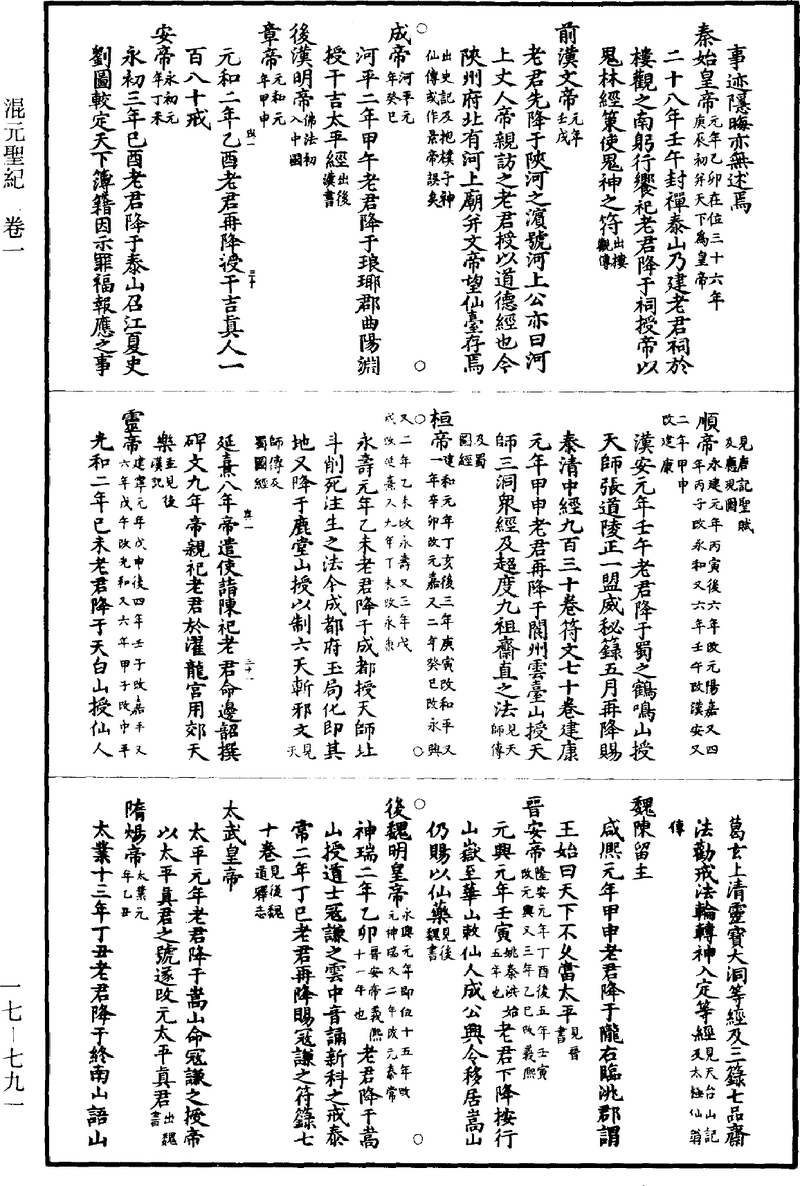 混元聖紀 卷一
一七—七九一
事迹隱晦亦無述焉
秦始皇帝元年乙卯在位三十六年庚辰初并天下爲皇帝
二十八年壬午封禪泰山乃建老君祠於
樓觀之南躬行饗祀老君降于祠授帝以
鬼林經策使鬼神之符出樓觀傳
前漢文帝元年壬戌
老君先降于陝河之濱號河上公亦曰河
上丈人帝親訪之老君授以道德經也今
陝州府北有河上廟并文帝望仙臺存焉
出史記及抱樸子神仙傳或作景帝誤矣
成帝河平元年癸巳
河平二年甲午老君降于琅琊郡曲陽淵
授干吉太平經出後漢書
後漢明帝佛法初入中國
章帝元和元年甲申
元和二年乙酉老君再降授干吉真人一
百八十戒
安帝永初元年丁未
永初三年己酉老君降于泰山召江夏史
劉圖較定天下簿籍因示罪福報應之事
見唐記聖賦及應現圖
順帝永建元年丙寅後六年改元陽嘉又四年丙子改永和又六年壬午改漢安又二年甲申改建康
漢安元年壬午老君降于蜀之鶴鳴山授
天師張道陵正一盟威秘籙五月再降賜
泰清中經九百三十卷符文七十卷建康
元年甲申老君再降于閬州雲臺山授天
師三洞衆經及超度九祖齋直之法見天師傳及蜀圖經
桓帝建和元年丁亥後三年庚寅改和平又一年辛卯改元嘉又二年癸巳改永興又二年乙未改永壽又三年戊戌改延熹又九年丁未改永康
永壽元年乙未老君降于成都授天師北
斗削死注生之法今成都府玉局化即其
地又降于鹿堂山授以制六天斬邪文見天師傳及蜀圖經
延熹八年帝遣使詣陳祀老君命邊韶撰
碑文九年帝親祀老君於濯龍宮用郊天
樂並見後漢記
靈帝建寧元年戊申後四年壬子改嘉平又六年戊午改光和又六年甲子改中平
光和二年己未老君降于天台山授仙人
葛玄上清靈寶大洞等經及三籙七品齋
法勸戒法輪轉神入定等經見天台山記及太極仙翁傳
魏陳留主
咸熙元年甲申老君降于隴右臨洮郡謂
王始曰天下不久當太平見晉書
晉安帝隆安元年丁酉後五年壬寅改元興又三年乙巳改義熙
元興元年壬寅姚秦洪始五年也老君下降按行
山嶽至華山敕仙人成公興令移居嵩山
仍賜以仙藥見後魏書
後魏明皇帝永興元年即位十五年改元神瑞又二年改元泰常
神瑞二年乙卯晉安帝義熙十一年也老君降于嵩
山授道士寇謙之雲中音誦新科之戒泰
常二年丁巳老君再降賜寇謙之符籙七
十卷見後魏道釋志
太武皇帝
太平元年老君降于嵩山命寇謙之授帝
以太平真君之號遂改元太平真君出魏書
隋煬帝太業元年乙丑
太業十三年丁丑老君降于終南山語山